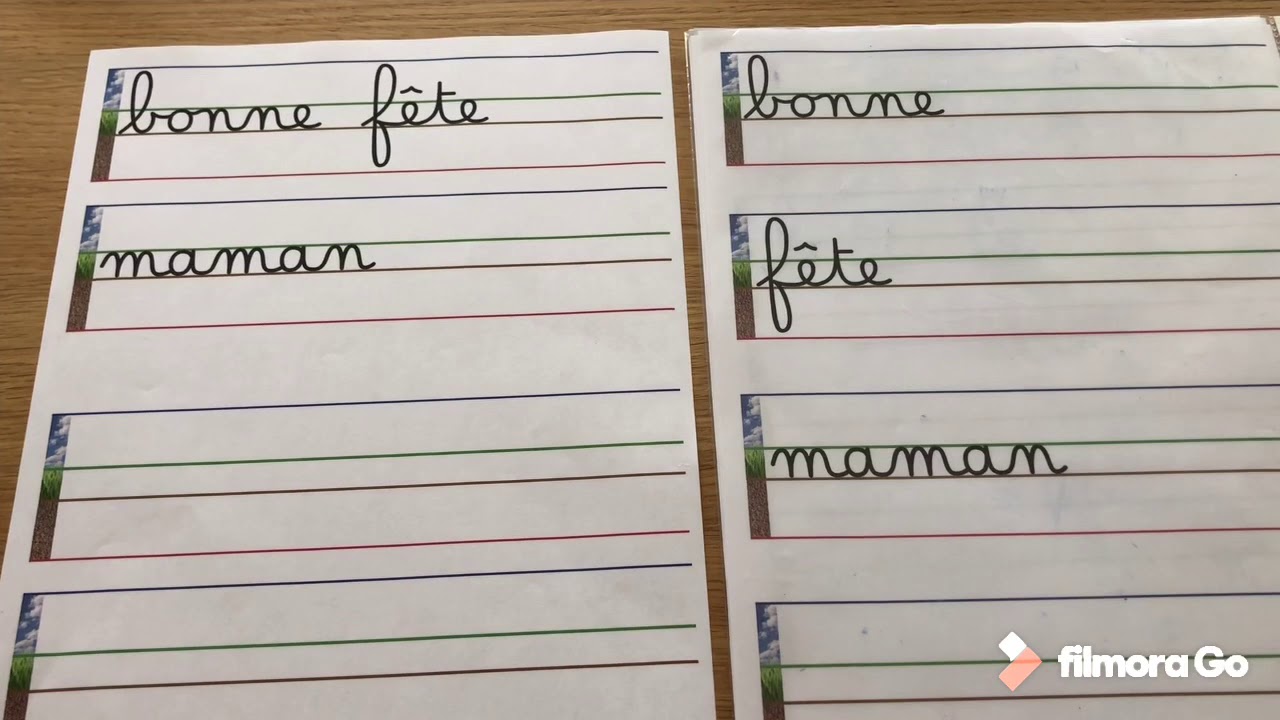 bonne fête
maman
bonne
fête
maman
filmora Go